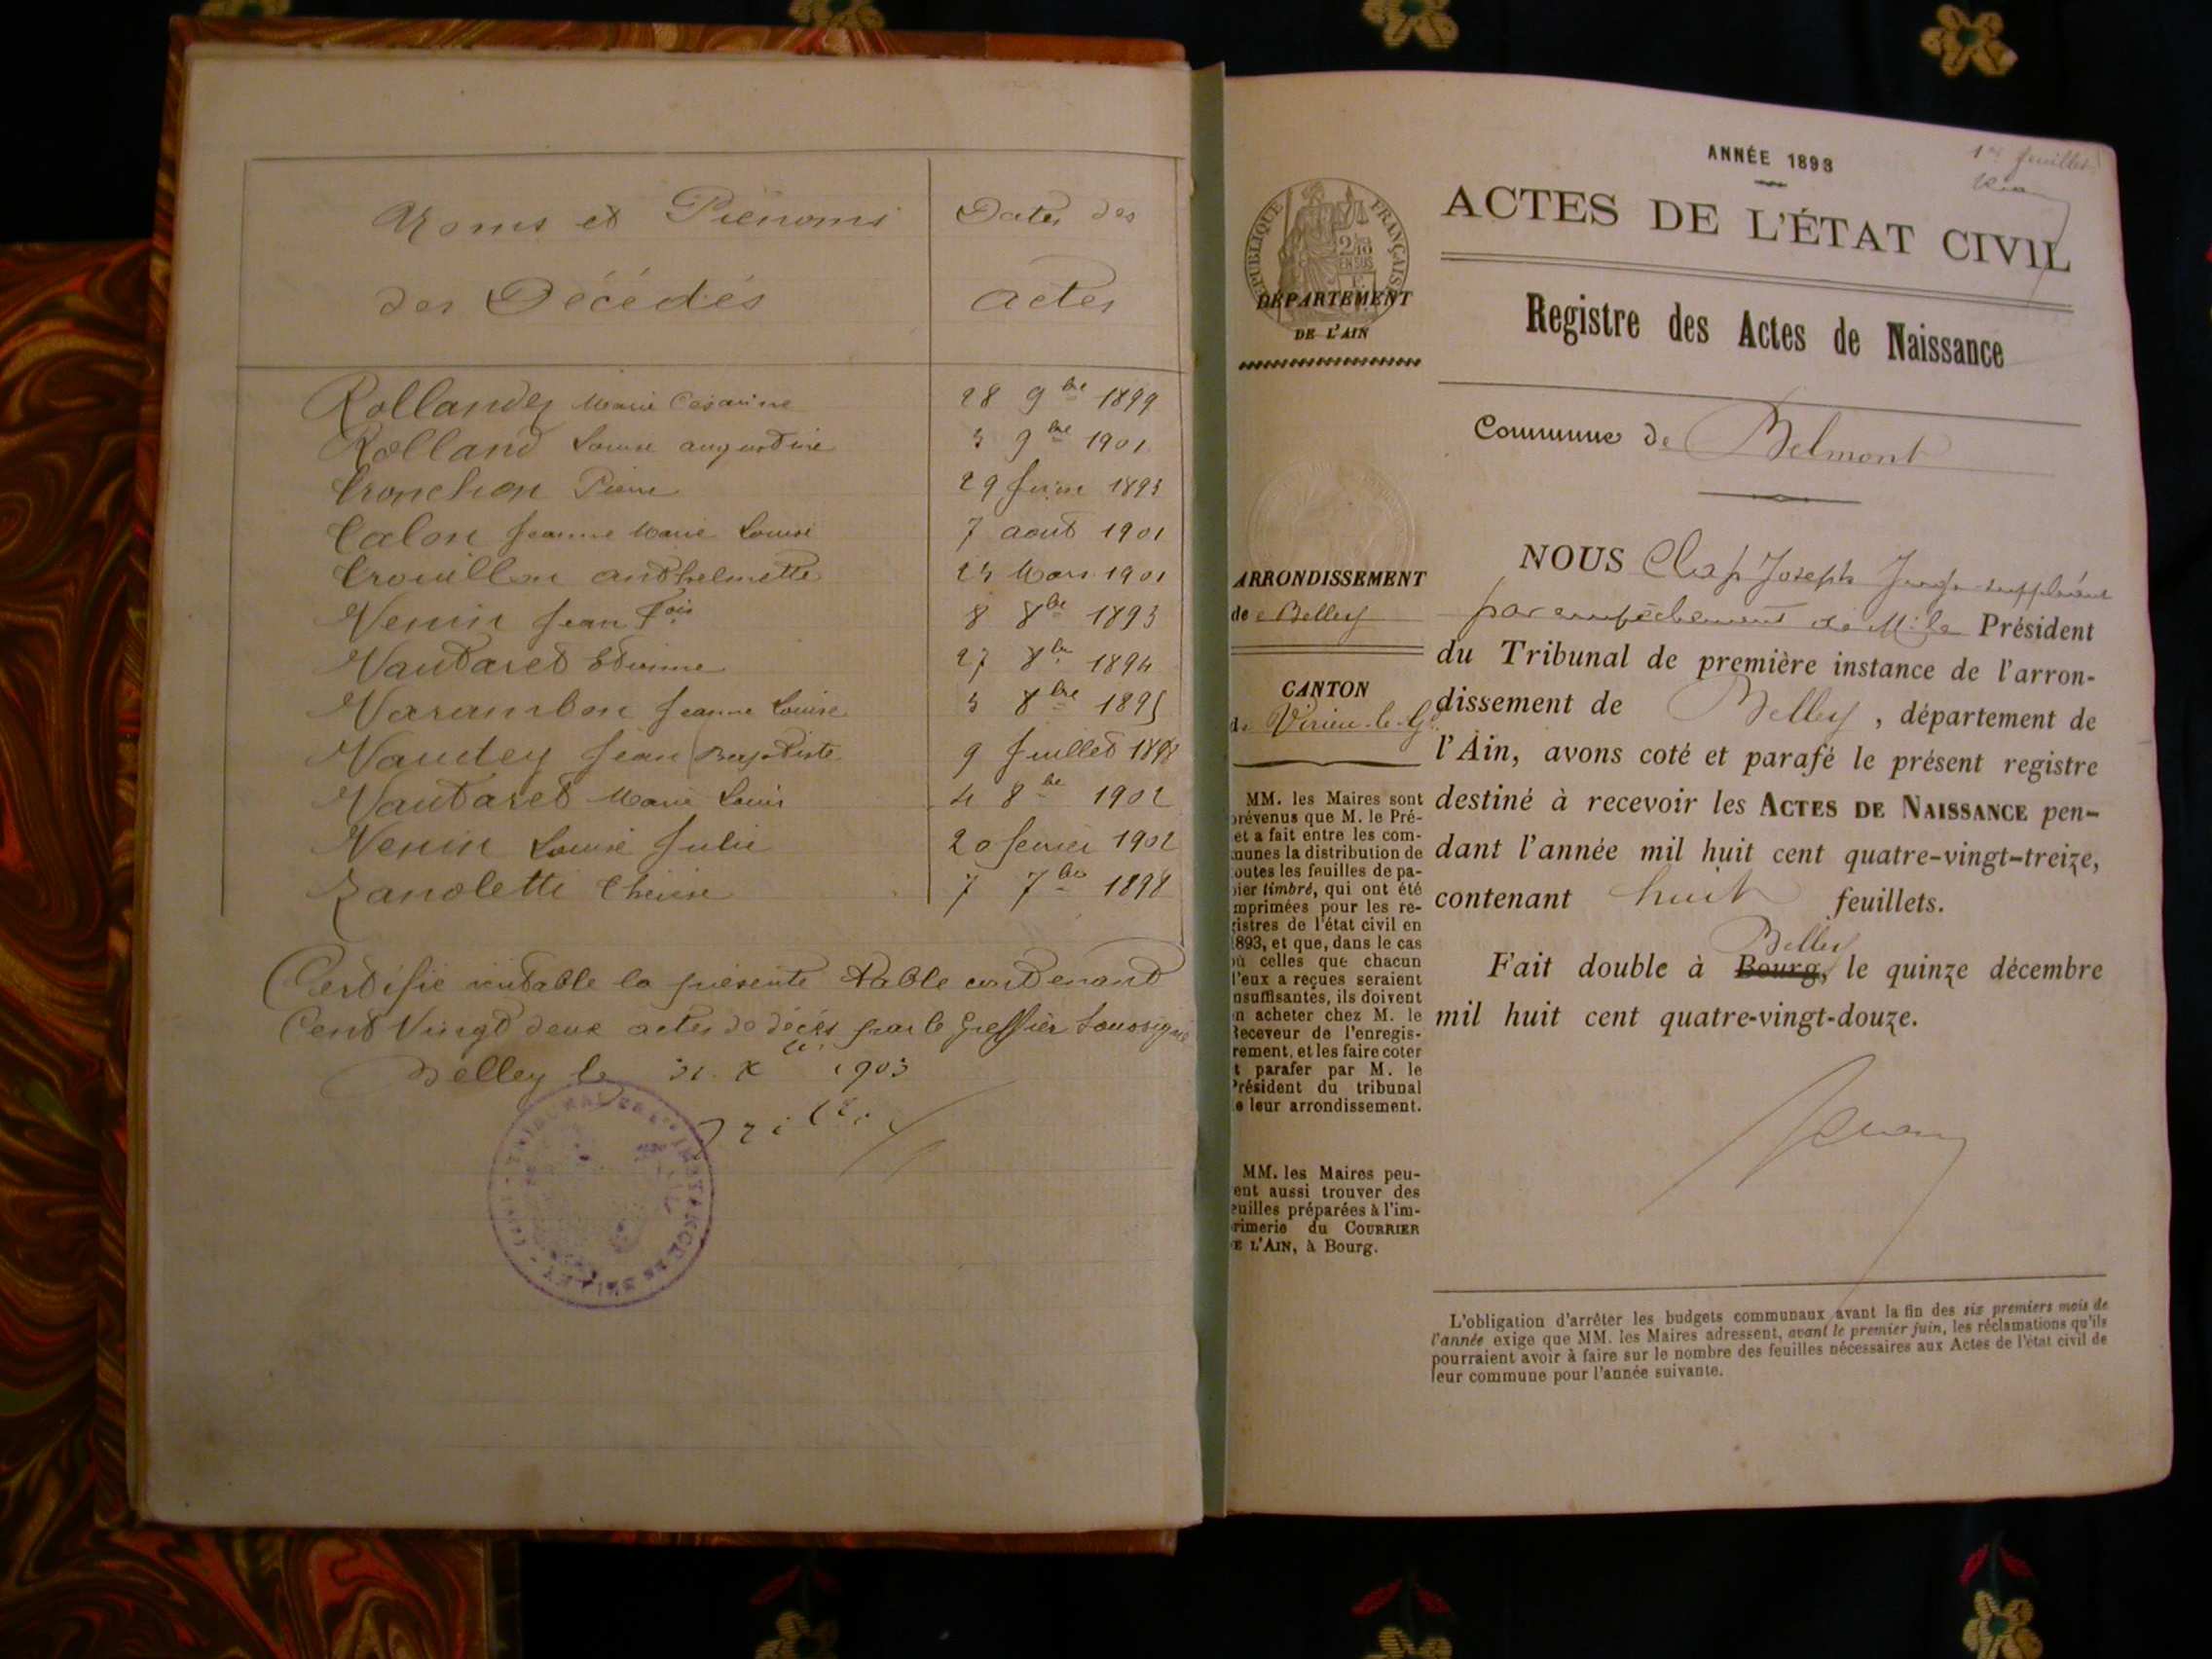 Noms et Prénoms
des Décédés
Dates des
actes
Rollandez Marie Césarine 28 9bre 1899
Rolland Louise augustine 3 9bre 1901
Tronchon Pierre 29 Juin 1893
Talon Jeanne Marie Louise 7 aout 1901
Trouillon anthelmette 23 Mars 1901
Venin Jean Fois 8 8bre 1893
Vautaret Etienne 27 8bre 1894
Varambon Jeanne Louise 3 8bre 1895
Vaudey Jean Baptiste 9 Juillet 1898
Vautaret Marie Louis 4 8bre 1902
Venin Louise Julie 20 fevrier 1902
Zanoletti Therese 7 7bre 1898
Certifié véritable la présente table contenant
Cent Vingt deux actes de décès par le Greffier Soussigné
Belley le 31 Xbre 1903
1er feuillet
ANNÉE 1893
ACTES DE L'ÉTAT CIVIL
Registre des Actes de Naissance
Commune de Belmont
RÉPUBLIQUE FRANÇAISE
2/10 EN SUS
DÉPARTEMENT
DE L'AIN
ARRONDISSEMENT
de Belley
CANTON
de Virieu-le-Gd
MM. les Maires sont
prévenus que M. le Pré-
et a fait entre les com-
munes la distribution de
outes les feuilles de pa-
pier timbré, qui ont été
mprimées pour les re-
gistres de l'état civil en
1893, et que, dans le cas
où celles que chacun
l'eux a reçues seraient
nsuffisantes, ils doivent
n acheter chez M. le
Receveur de l'enregis-
rement, et les faire coter
t parafer par M. le
Président du tribunal
e leur arrondissement.
MM. les Maires peu-
ent aussi trouver des
euilles préparées à l'im-
rimerie du COURRIER
E L'AIN, à Bourg.
NOUS Clap Joseph Juge suppléant
par empêchement de M. le Président
du Tribunal de première instance de l'arron-
dissement de Belley, département de
l'Ain, avons coté et parafé le présent registre
destiné à recevoir les ACTES DE NAISSANCE pen-
dant l'année mil huit cent quatre-vingt-treize,
contenant huit feuillets.
Belley
Fait double à Bourg, le quinze décembre
mil huit cent quatre-vingt-douze.
L'obligation d'arrêter les budgets communaux avant la fin des six premiers mois de
l'année exige que MM. les Maires adressent, avant le premier juin, les réclamations qu'ils
pourraient avoir à faire sur le nombre des feuilles nécessaires aux Actes de l'état civil de
leur commune pour l'année suivante.